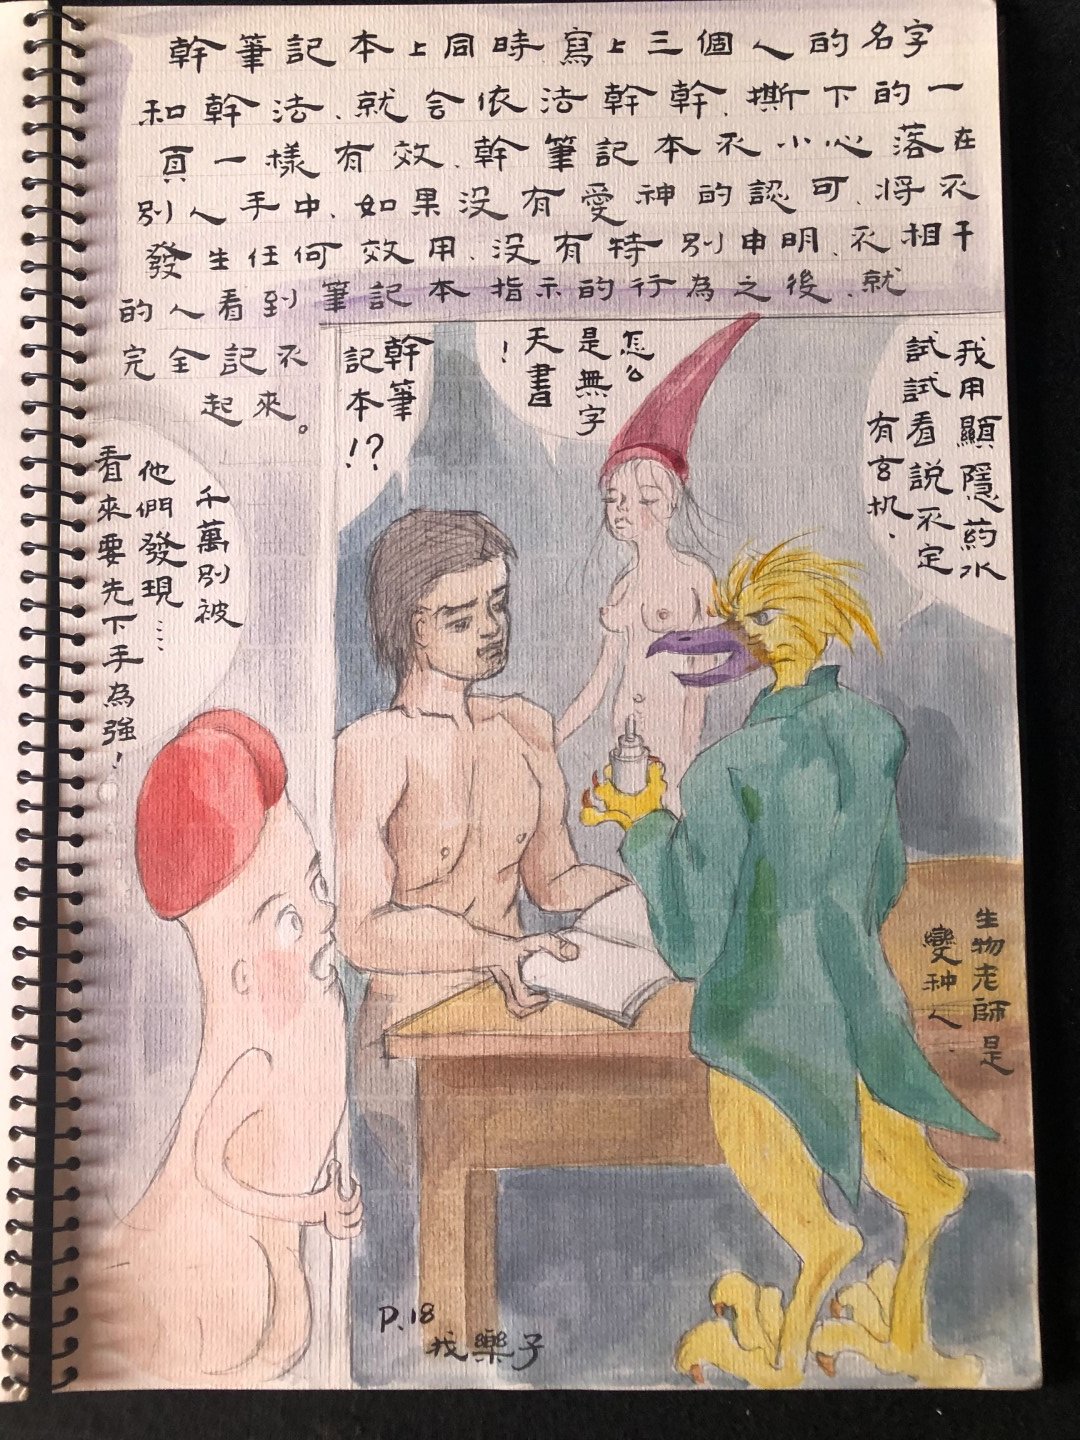 幹筆記本上同時寫上三個人的名字
和幹法、就会依法幹幹、撕下的一
頁一樣有效、幹筆記本不小心落在
別人手中、如果没有愛神的認可、将不
發生任何效用、没有特別申明、不相干
的人看到筆記本指示的行為之後、就
完全記不
起來。
我用顯隱葯水
試試看説不定
有玄机、
怎么
是無字
天書
!
幹筆
記本!?
千萬別被
他們發現……
看來要先下手為強!
生物老師是
變种人
P.18
找樂子